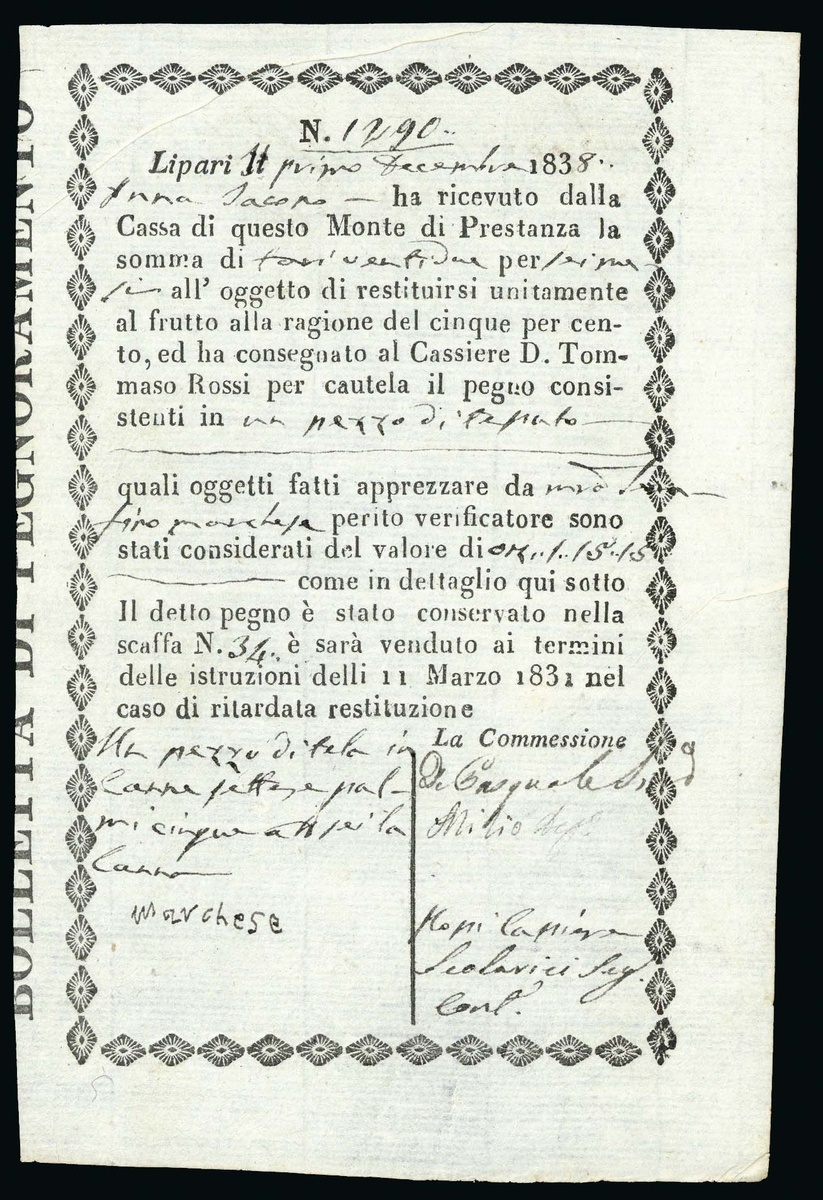 BOLLETTA DI PEGNORAMENTO
N. 1290
Lipari lì primo Decembre 1838
Anna Iacono ha ricevuto dalla
Cassa di questo Monte di Prestanza la
somma di tarì ventidue per sei me
si all' oggetto di restituirsi unitamente
al frutto alla ragione del cinque per cen-
to, ed ha consegnato al Cassiere D. Tom-
maso Rossi per cautela il pegno consi-
stenti in un pezzo di
quali oggetti fatti apprezzare da
Marchese perito verificatore sono
stati considerati del valore di on. 1. 15. 15
come in dettaglio qui sotto
Il detto pegno è stato conservato nella
scaffa N. 34. è sarà venduto ai termini
delle istruzioni delli 11 Marzo 1831 nel
caso di ritardata restituzione
Un pezzo di tela in
canne sette e pal-
mi cinque a tt sei la
canna
Marchese
La Commessione
De Pasquale